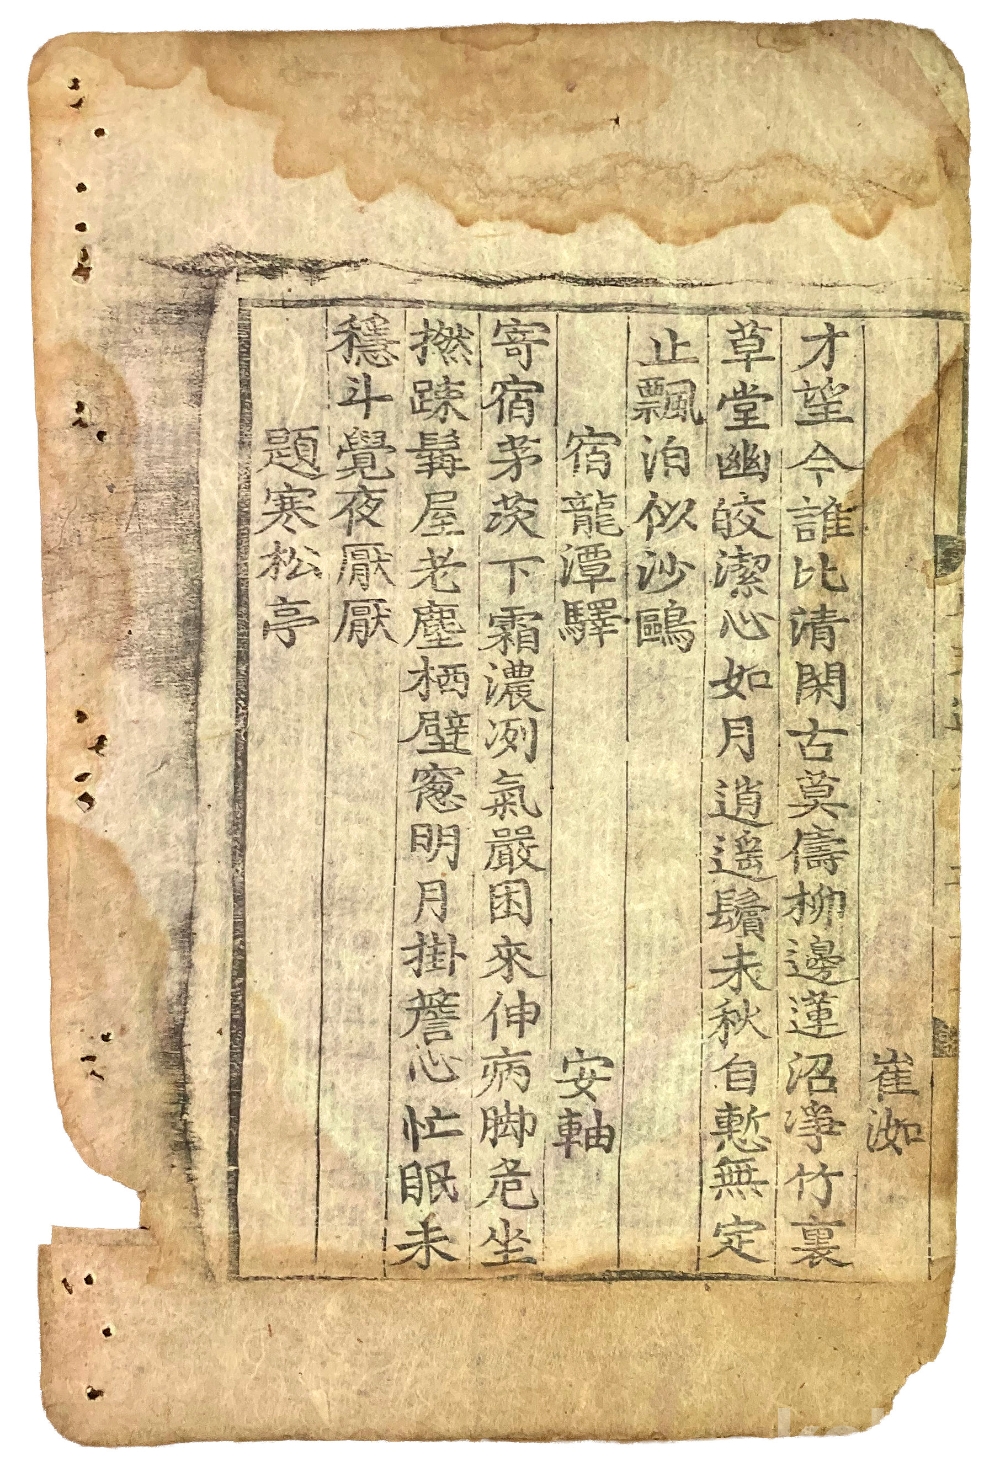 崔洳
才望今誰比清閑古莫儔柳邊蓮沼淨竹裏
草堂幽皎潔心如月逍遙鬢未秋自慙無定
止飄泊似沙鷗
宿龍潭驛 安軸
寄宿茅茨下霜濃冽氣嚴困來伸病脚危坐
撚踈髯屋老塵栖壁窓明月掛簷心忙眠未
穩斗覺夜厭厭
題寒松亭